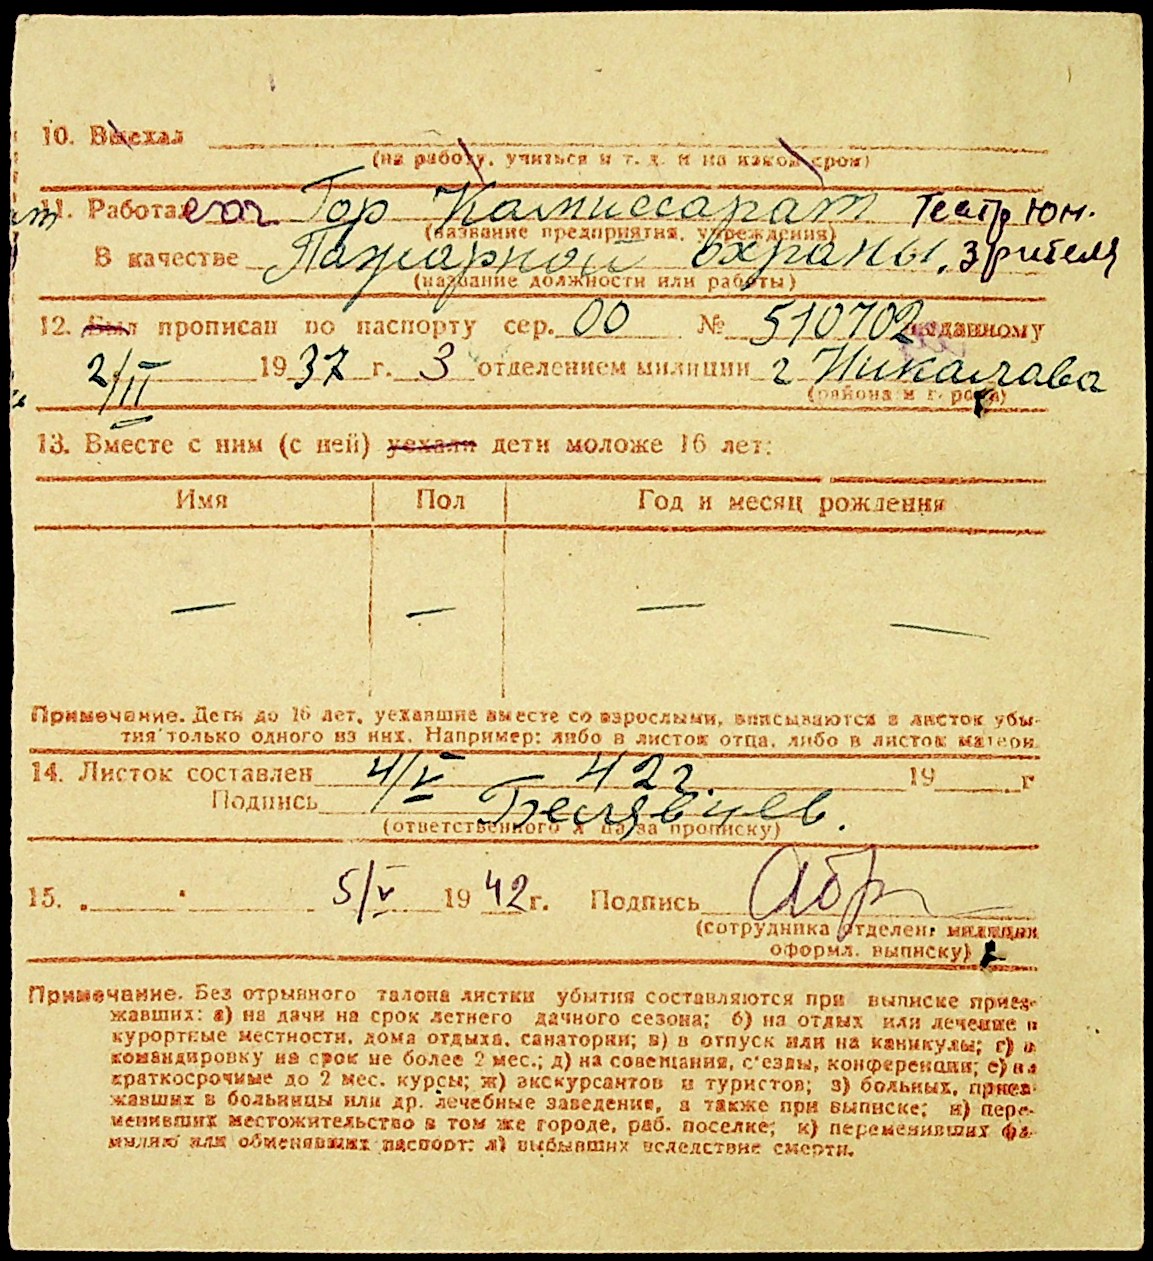 10. Выехал
(на работу, учиться и т. д. и на какой срок)
11. Работает Гор Комиссарат Театр юн.
(название предприятия, учреждения)
В качестве Пажарной охраны. зрителя
(название должности или работы)
12. Был прописан по паспорту сер. 00 № 510702 выданному
2/II 1937 г. 3 отделением милиции г Никалава
(района и города)
13. Вместе с ним (с ней) уехали дети моложе 16 лет:
Имя Пол Год и месяц рождения
— — — —
Примечание. Дети до 16 лет, уехавшие вместе со взрослыми, вписываются в листок убы-
тия только одного из них. Например: либо в листок отца, либо в листок матери
14. Листок составлен 4/V 42 г. 19 г
Подпись Белявцев.
(ответственного л ца за прописку)
15. 5/V 1942 г. Подпись
(сотрудника отделен. милиции
оформл. выписку)
Примечание. Без отрывного талона листки убытия составляются при выписке приез-
жавших: а) на дачи на срок летнего дачного сезона; б) на отдых или лечение в
курортные местности, дома отдыха, санатории; в) в отпуск или на каникулы; г) в
командировку на срок не более 2 мес.; д) на совещания, с'езды, конференции; е) на
краткосрочные до 2 мес. курсы; ж) экскурсантов и туристов; з) больных, приез-
жавших в больницы или др. лечебные заведения, а также при выписке; и) пере-
менивших местожительство в том же городе, раб. поселке; к) переменивших фа-
милию или обменявших паспорт; л) выбывших вследствие смерти.